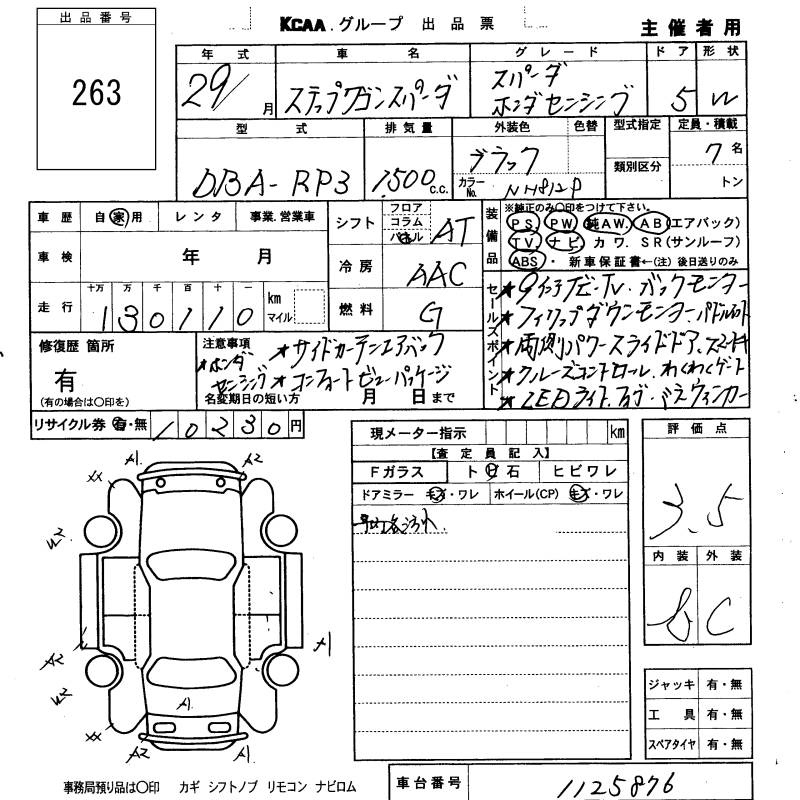 出品番号
263
KCAA.グループ 出品票
主催者用
年式 車名 グレード ドア 形状
29/ 月 ステップワゴンスパーダ スパーダ
ホンダセンシング 5 W
型式 排気量 外装色 色替 型式指定 定員・積載
DBA-RP3 1,500 c.c. ブラック 類別区分 7名
カラーNo. NH812P トン
車歴 自家用 レンタ 事業.営業車
シフト フロア コラム パネル AT
車検 年 月
冷房 AAC
走行 十万 万 千 百 十 一 km マイル
130110
燃料 G
装備品 ※純正のみ○印をつけて下さい。
PS. PW 純AW. AB(エアバック)
TV. ナビ カワ. SR(サンルーフ)
ABS・ 新車保証書←(注) 後日送りのみ
セールスポイント
★9インチナビ・TV・バックモニター
★フィリップダウンモニター・パドルシフト
★両側パワースライドドア、スマートキー
★クルーズコントロール・わくわくゲート
★LEDライト・フォグ・ドアミラーウィンカー
修復歴 箇所
有
(有の場合は○印を)
注意事項 ★サイドカーテンエアバック
★ホンダセンシング ★コンフォートビューパッケージ
名変期日の短い方 月 日まで
リサイクル券 有・無 10230円
現メーター指示 km
【査定員記入】
Fガラス ト石 ヒビワレ
ドアミラー キズ・ワレ ホイール(CP) キズ・ワレ
評価点
3.5
内装 外装
B C
A1 A2
XX
W2
W2
A2
A1
A1
W2
XX
A2 A1
ジャッキ 有・無
工具 有・無
スペアタイヤ 有・無
事務局預り品は○印 カギ シフトノブ リモコン ナビロム
車台番号 1125876